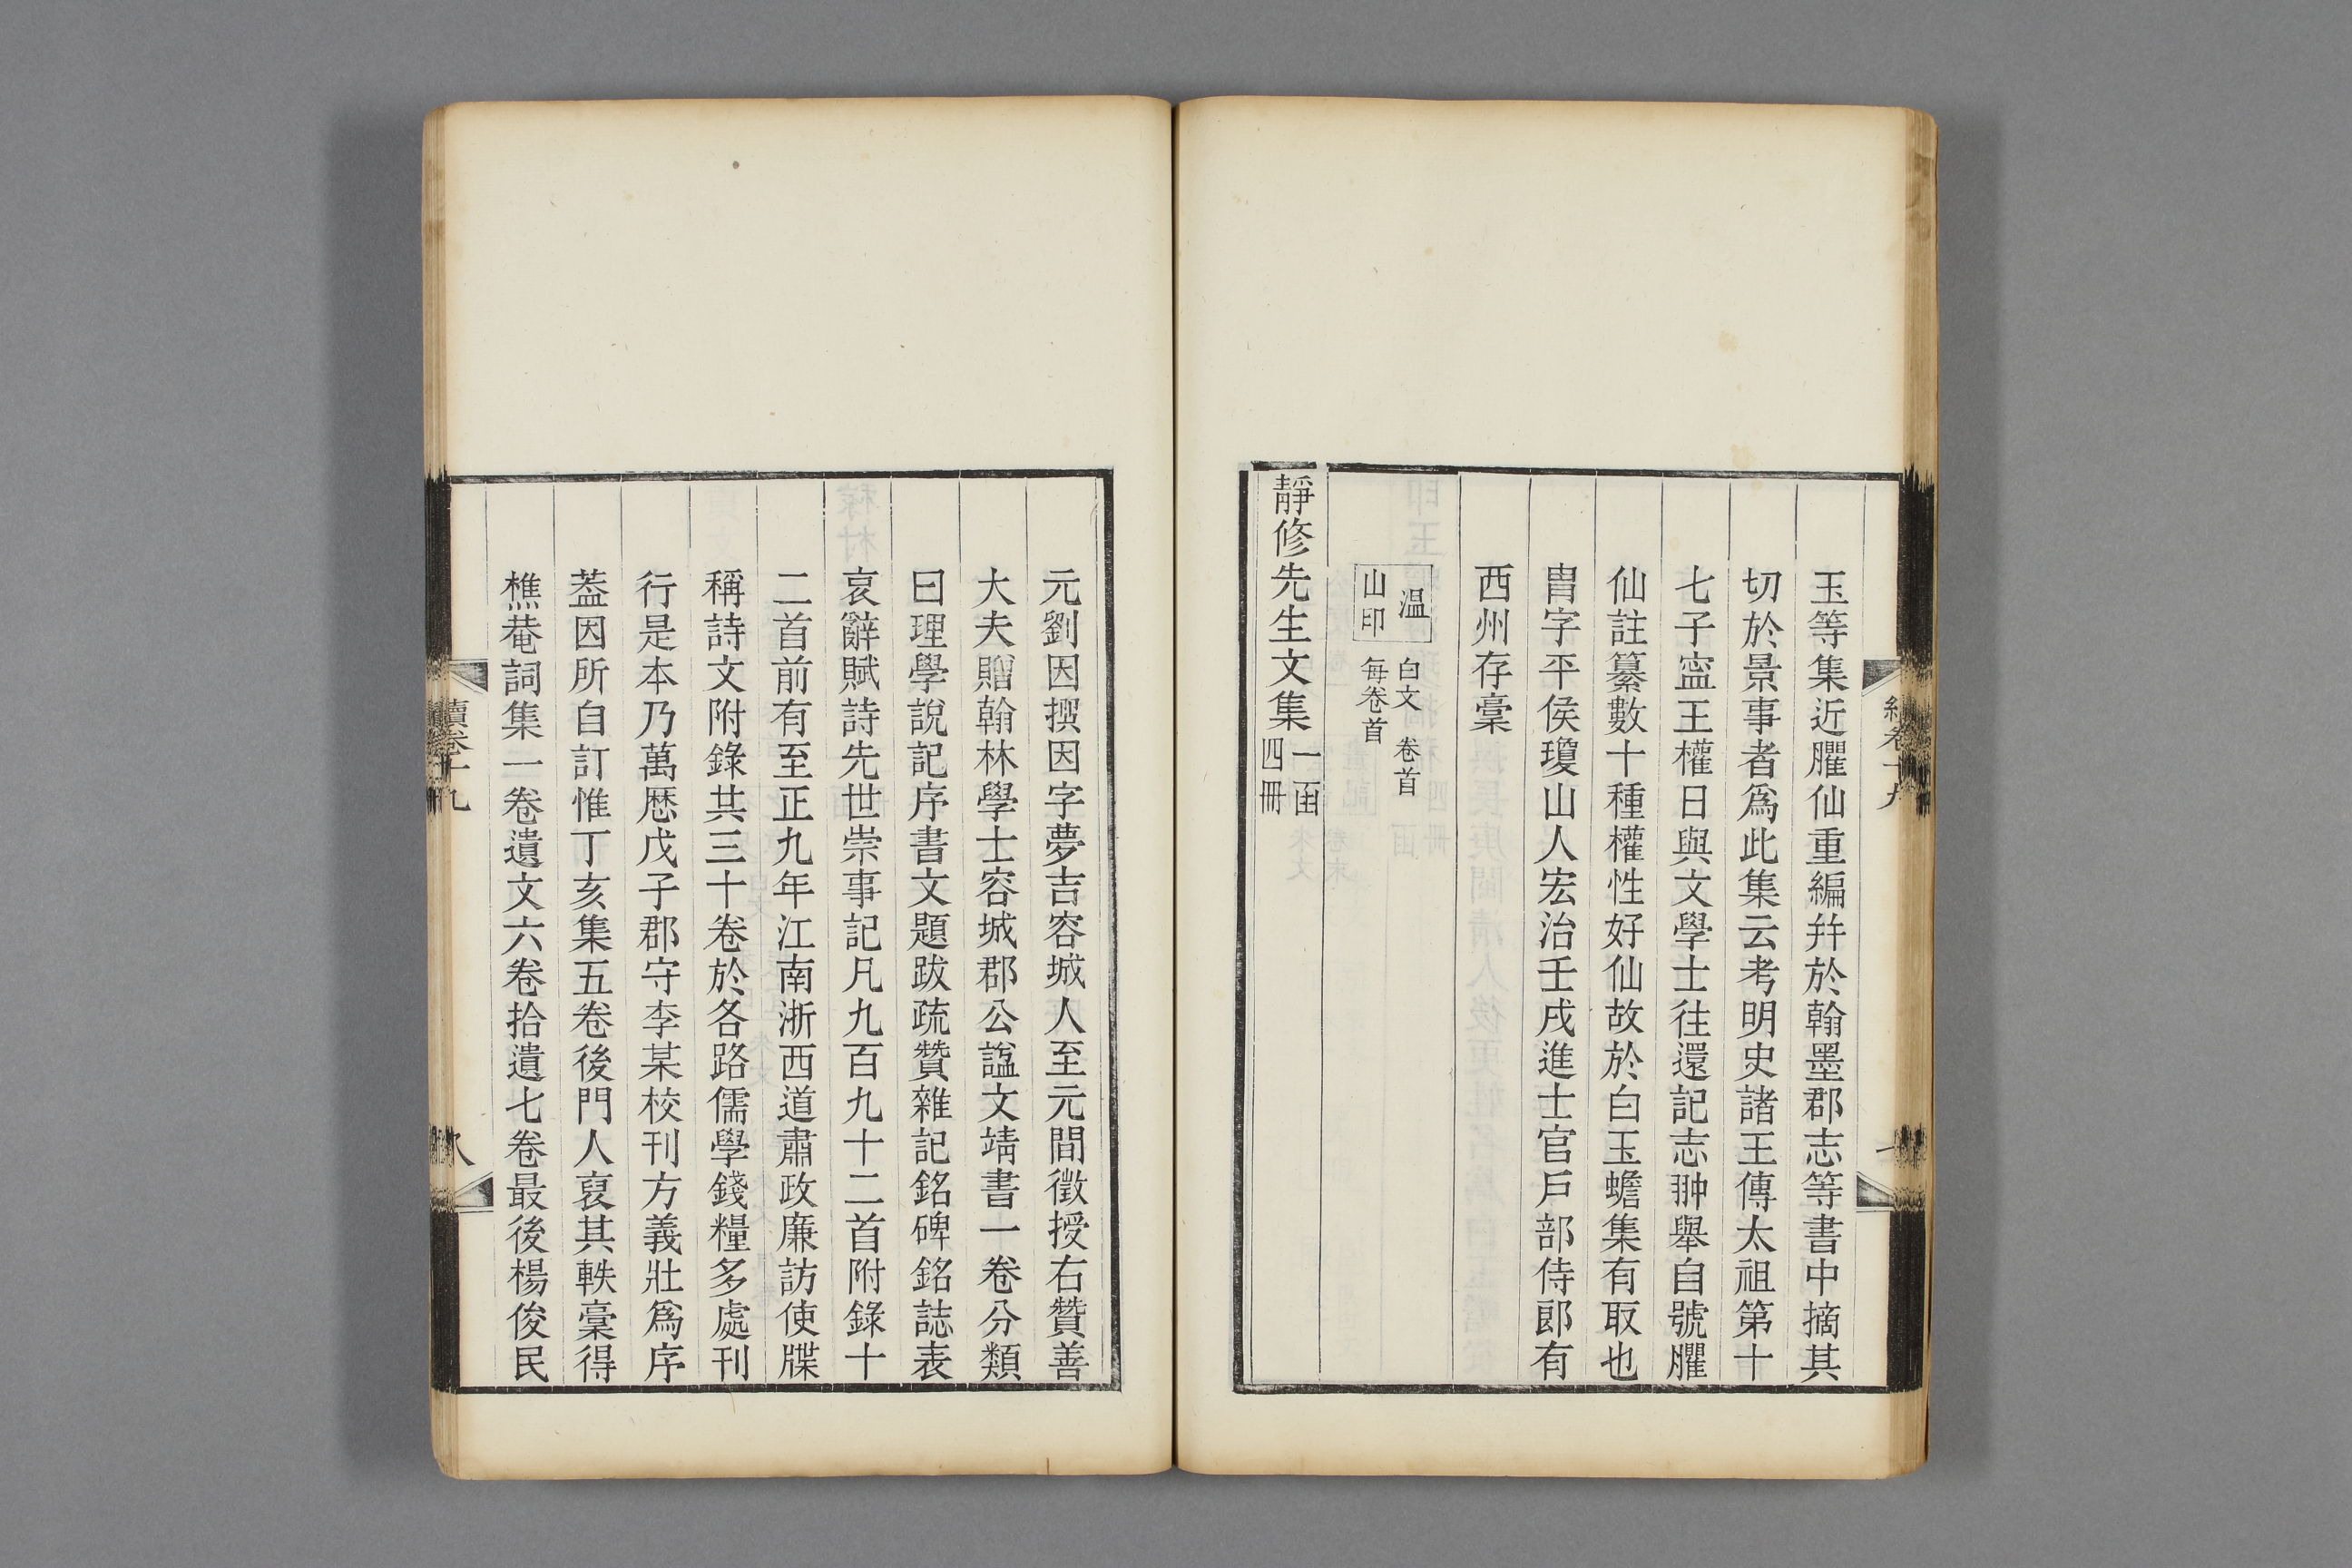 玉等集近臞仙重編幷於翰墨郡志等書中摘其
切於景事者爲此集云考明史諸王傳太祖第十
七子寍王權日與文學士往還記志翀舉自號臞
仙註纂數十種權性好仙故於白玉蟾集有取也
胄字平侯瓊山人宏治壬戌進士官戶部侍郞有
西州存稾
温
山印
白文 卷首
每卷首
靜修先生文集
一函
四冊
元劉因撰因字夢吉容城人至元間徵授右贊善
大夫贈翰林學士容城郡公諡文靖書一卷分類
曰理學說記序書文題跋疏贊雜記銘碑銘誌表
哀辭賦詩先世崇事記凡九百九十二首附錄十
二首前有至正九年江南浙西道肅政廉訪使牒
稱詩文附錄共三十卷於各路儒學錢糧多處刊
行是本乃萬厯戊子郡守李某校刊方義壯爲序
葢因所自訂惟丁亥集五卷後門人裒其軼稾得
樵菴詞集一卷遺文六卷拾遺七卷最後楊俊民
續卷十九
八